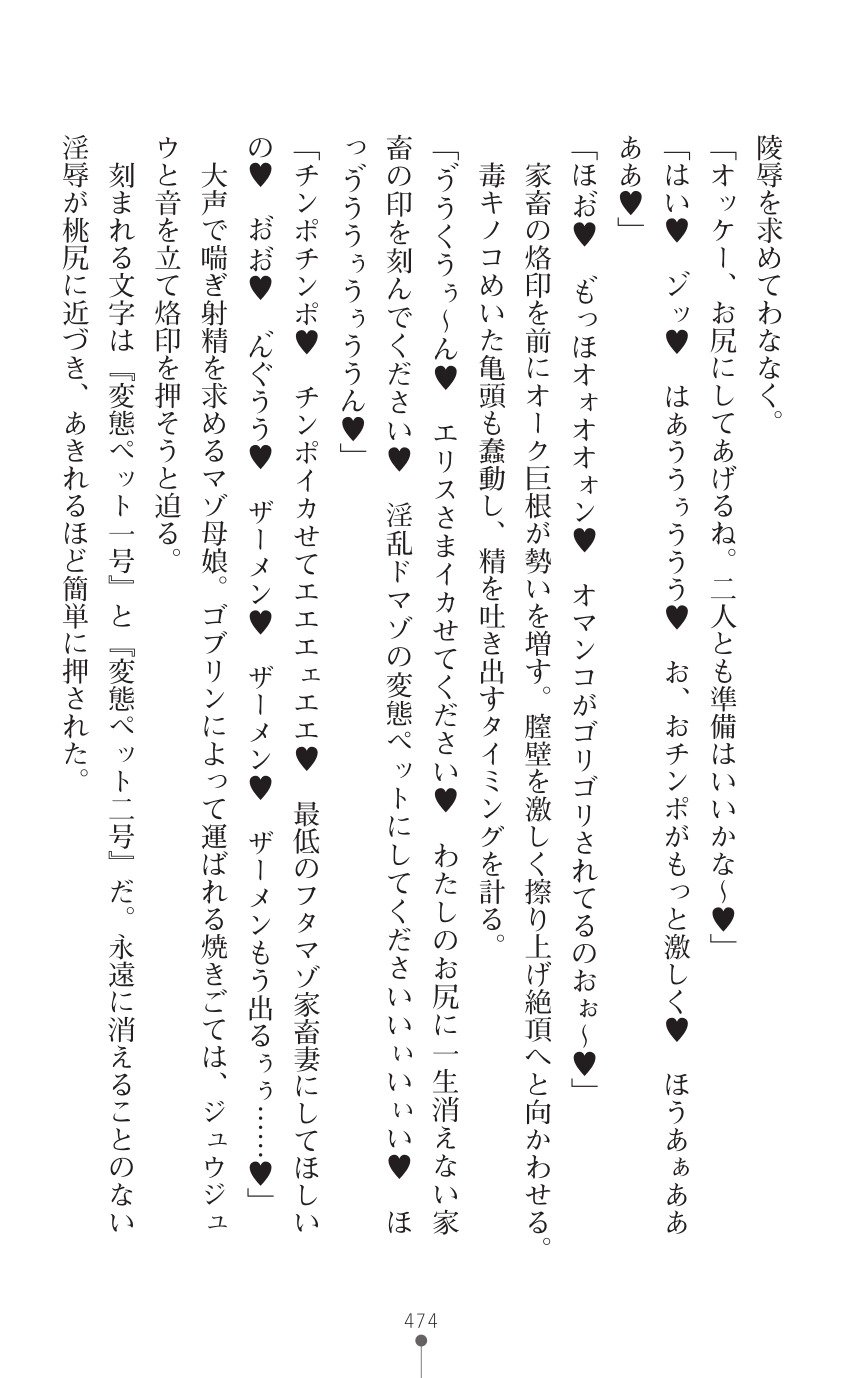 陵辱を求めてわななく。
「オッケー、お尻にしてあげるね。二人とも準備はいいかな〜♥」
「はい♥　ゾッ♥　はあううぅううう♥　お、おチンポがもっと激しく♥　ほうあぁああ
ああ♥」
「ほお゛♥　も゛っほオォオオォン♥　オマンコがゴリゴリされてるのおぉ〜♥」
　家畜の烙印を前にオーク巨根が勢いを増す。膣壁を激しく擦り上げ絶頂へと向かわせる。
　毒キノコめいた亀頭も蠢動し、精を吐き出すタイミングを計る。
「ゔうくうぅ〜ん♥　エリスさまイカせてください♥　わたしのお尻に一生消えない家
畜の印を刻んでください♥　淫乱ドマゾの変態ペットにしてくださいいぃいぃい♥　ほ
っゔううぅうぅううん♥」
「チンポチンポ♥　チンポイカせてエエエェエエ♥　最低のフタマゾ家畜妻にしてほしい
の♥　お゛お゛♥　ん゛ぐうう♥　ザーメン♥　ザーメン♥　ザーメンもう出るぅぅ……♥」
　大声で喘ぎ射精を求めるマゾ母娘。ゴブリンによって運ばれる焼きごては、ジュウジュ
ウと音を立て烙印を押そうと迫る。
　刻まれる文字は『変態ペット一号』と『変態ペット二号』だ。永遠に消えることのない
淫辱が桃尻に近づき、あきれるほど簡単に押された。
474